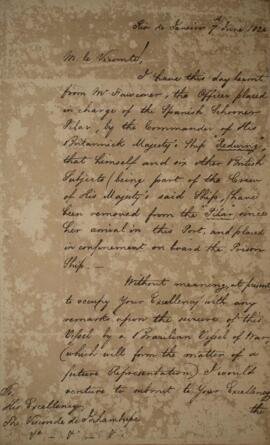 Rio de Janeiro 7th June 1826
M. le Vicomte!
I have this day learnt
from Mr Fawcener, the Officer placed
in charge of the Spanish Schooner
Pilar, by the Commander of His
Britannick Majesty's Ship Redwing,
that himself and six other British
Subjects (being part of the Crew
of His Majesty's said Ship,) have
been removed from the Pilar since
her arrival in this Port, and placed
in confinement on board the Prison
Ship. —
Without meaning, at present
to occupy Your Excellency with any
remarks upon the seizure of this
Vessel by a Brazilian Vessel of War,
(which will form the matter of a
future Representation) I would
venture to submit to Your Excellency
the
His Excellency
The Visconde de Inhambupe